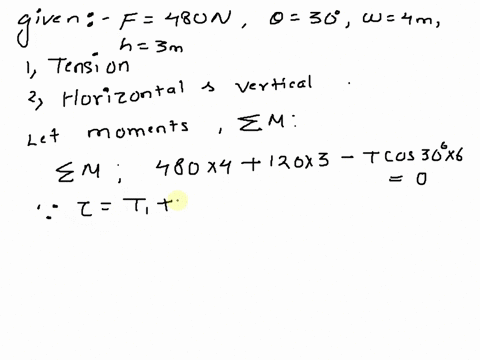 given:- F = 480N, θ = 30°, w = 4m,
h = 3m
1, Tension
2, Horizontal & vertical.
Let moments, ΣM:
ΣM; 480×4 + 120×3 - T cos 30°×6
= 0
∵ τ = T₁ +